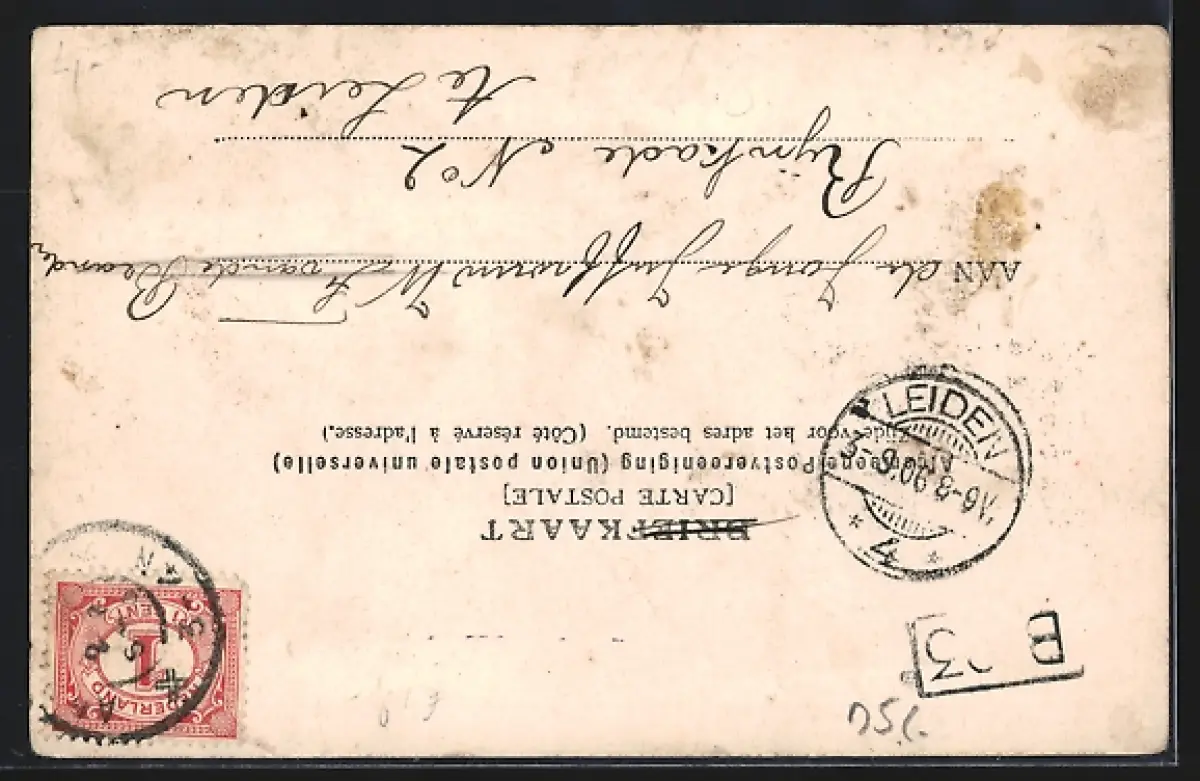 BRIEFKAART
[CARTE POSTALE]
Algemeene Postvereeniging (Union postale universelle)
Zijde voor het adres bestemd. (Côté réservé à l'adresse.)
AAN de Jonge Juffrouw W. F. van de
Rijnkade No 2
te Leiden
LEIDEN
4
NEDERLAND
1 CENT
1
B 23